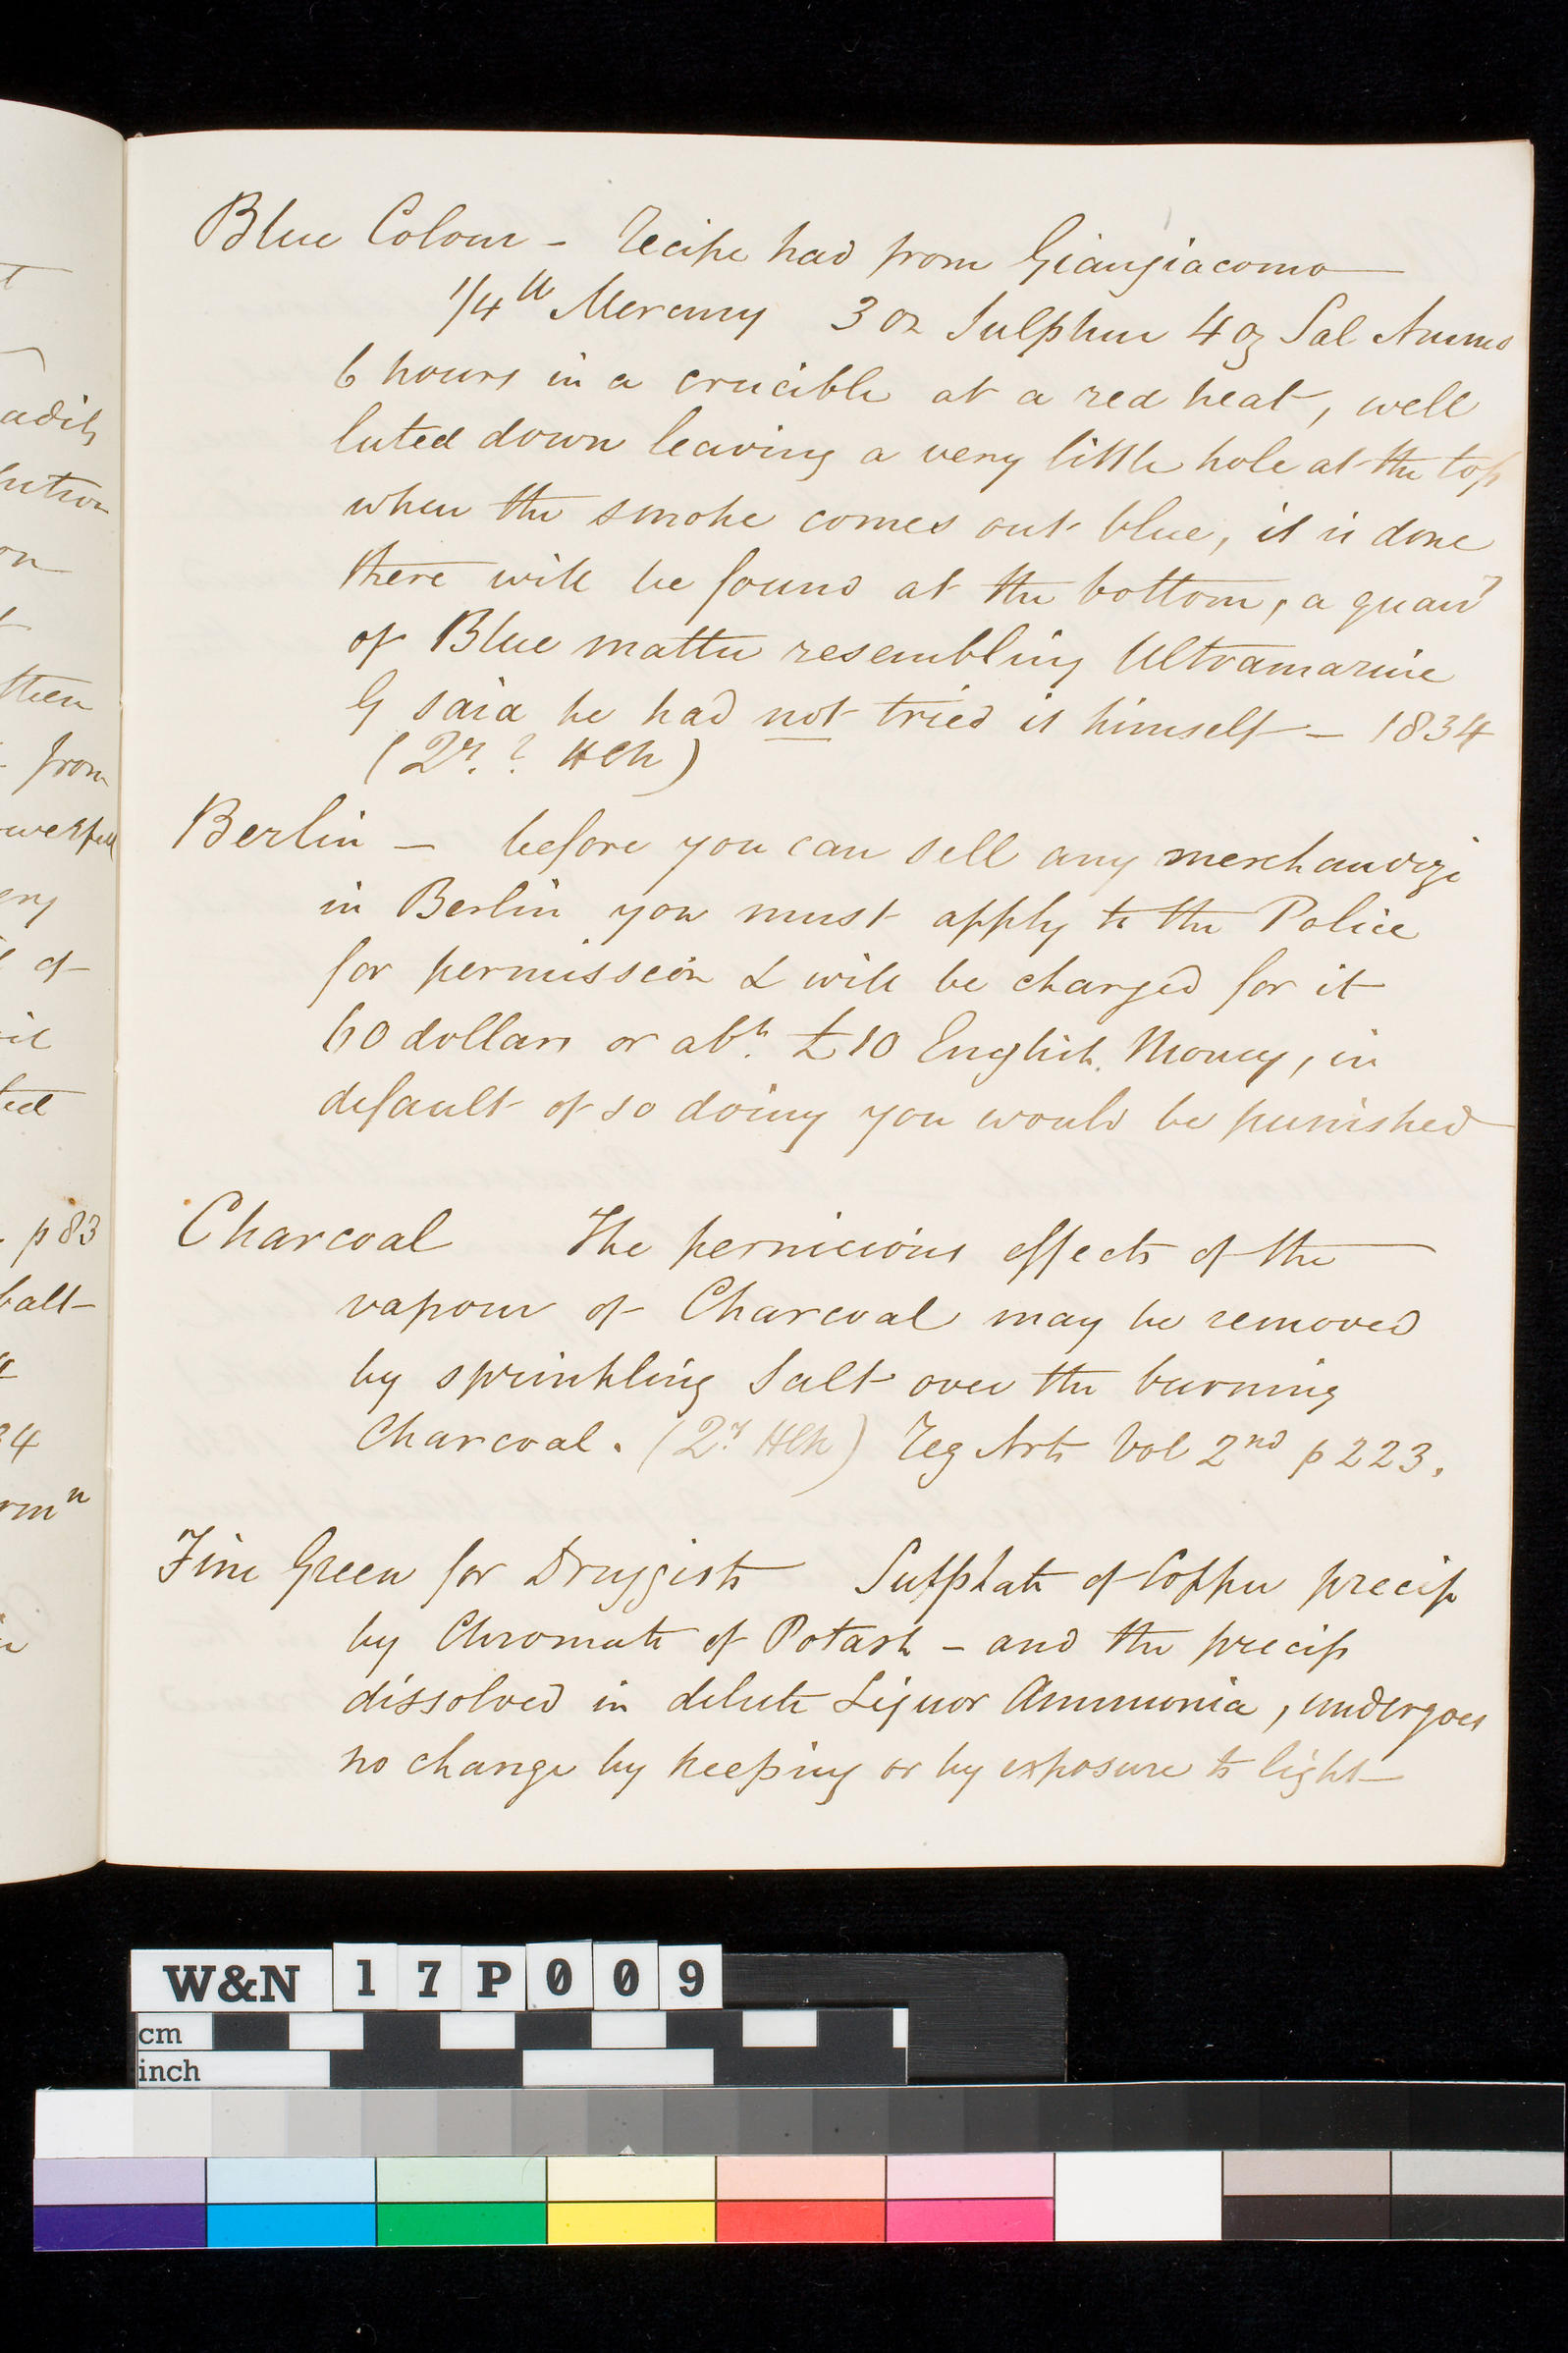 Blue Colour - Recipe had from Giangiacomo
1/4 lb Mercury 3 oz Sulphur 4 oz Sal Ammo
6 hours in a crucible at a red heat, well
luted down leaving a very little hole at the top
when the smoke comes out blue, it is done
there will be found at the bottom, a quany
of Blue matter resembling Ultramarine
G said he had not tried it himself - 1834
(Qy. ? HCh)
Berlin - before you can sell any merchandize
in Berlin you must apply to the Police
for permission & will be charged for it
60 dollars or abt. £10 English Money, in
default of so doing you would be punished
Charcoal The pernicious effects of the
vapour of Charcoal may be removed
by sprinkling Salt over the burning
Charcoal. (Qy HCh) Reg Arts Vol 2nd p 223.
Fine Green for Druggists Sulphate of Copper precip
by Chromate of Potash - and the precip
dissolved in dilute Liquor Ammonia, undergoes
no change by keeping or by exposure to light
adily
lution
on
then
from
werful
ery
of
p 83
balt
34
rmn
W&N 17P009
cm
inch